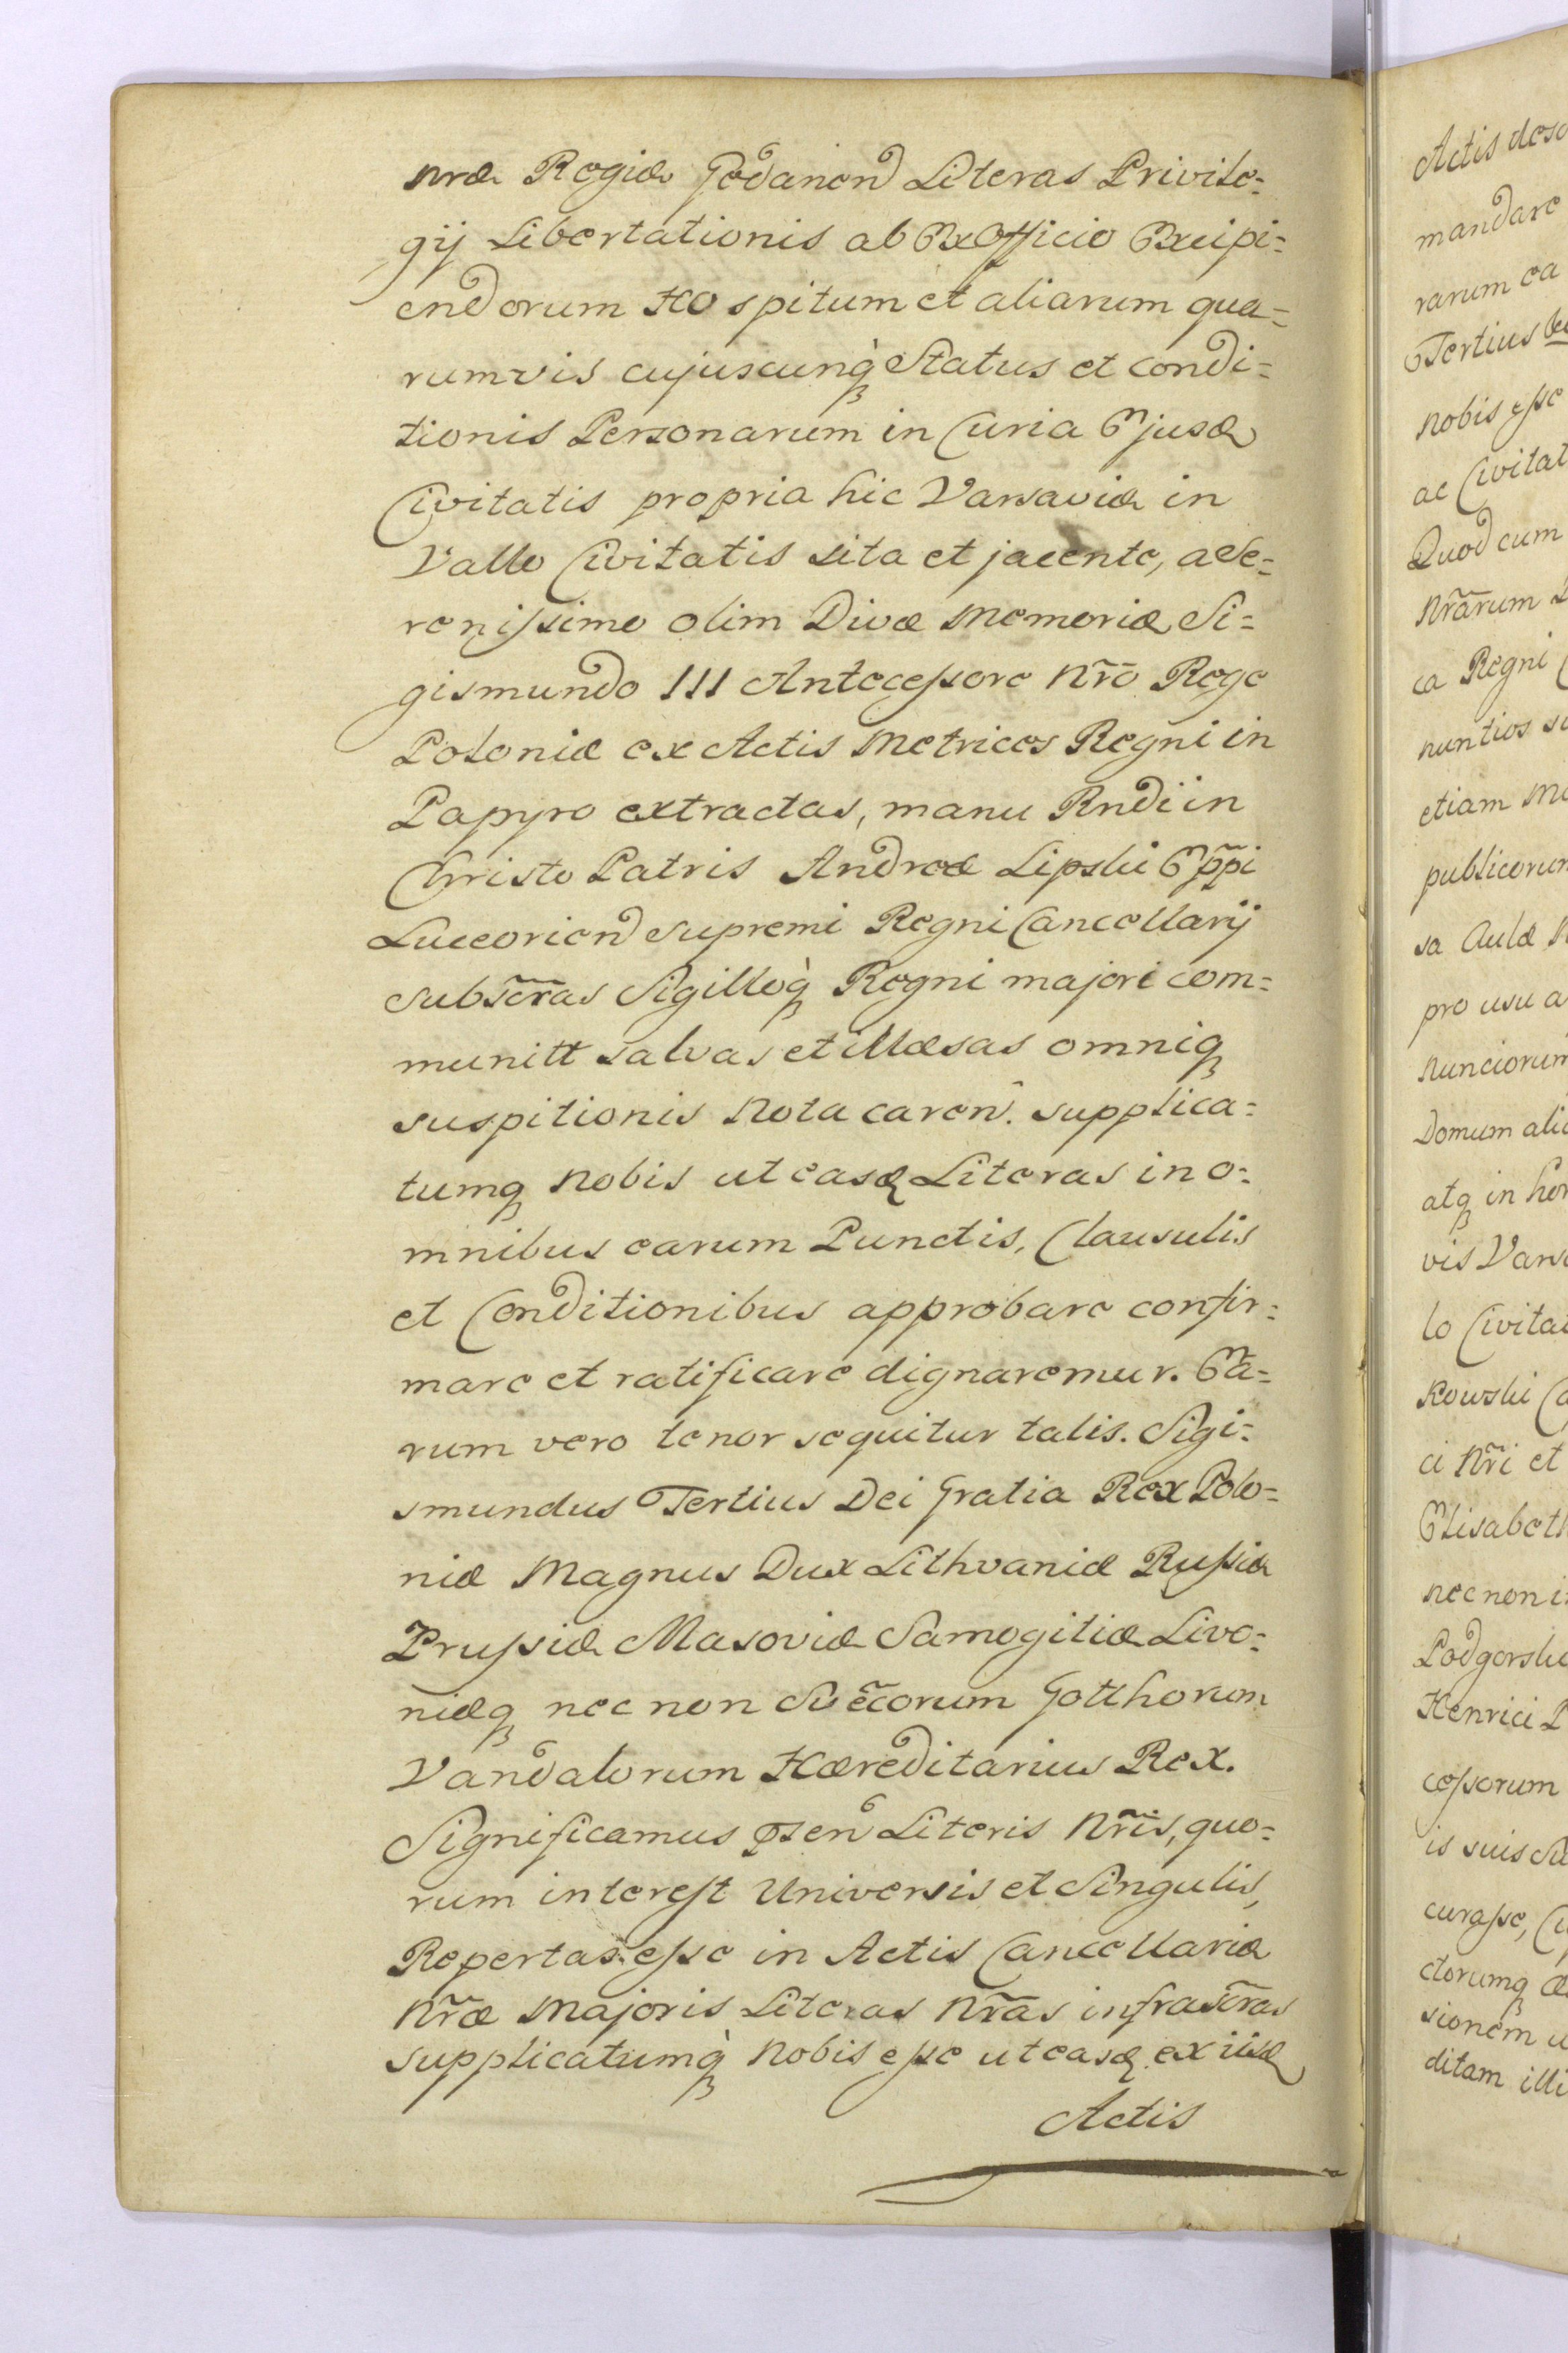 nræ Regiæ Gedanen Literas Privile=
gij Libertationis ab Ex Officio Excipi=
endorum Hospitum et aliarum qua=
rumvis cujuscunq̀ Status et condi=
tionis Personarum in Curia Ejusd
Civitatis propria hic Varsaviæ in
Vallo Civitatis sita et jacente, a Se=
renissimo olim Divæ Memoriæ Si=
gismundo III Antecessore Nr̃o Rege
Poloniæ ex Actis Metrices Regni in
Papyro extractas, manu Rndi in
Christo Patris Andreæ Lipski Ep̃pi
Lucceorien Supremi Regni Cancellarij
Subscr̃as Sigilloq̀ Regni majori com=
munitt salvas et illæsas omniq
suspitionis Nota caren. supplica=
tumq Nobis ut easd Literas in o=
mnibus earum Punctis, Clausulis
et Conditionibus approbare confir=
mare et ratificare dignaremur. Ea=
rum vero tenor sequitur talis. Sigi=
smundus Tertius Dei Gratia Rex Polo=
niæ Magnus Dux Lithvaniæ Russiæ
Prussiæ Masoviæ Samogitiæ Livo=
niæq nec non Svecorum Gotthorum
Vandalorum Hæreditarius Rex.
Significamus psen Literis Nr̃is, quo=
rum interest Universis et Singulis,
Repertas esse in Actis Cancellariæ
Nr̃æ Majoris Literas Nr̃as infrascr̃as
supplicatumq̀ Nobis esse ut easd ex iisd
Actis
Actis desc
mandare
rarum ea
Tertius
Nobis esse
ac Civitat
Quod cum
Nr̃arum
ca Regni
nuntios
etiam
publicorum
sa Aulæ
pro usu a
Nunciorum
Domum ali
atq in
vis Vars
lo Civita
Kowski
ci Nr̃i et
Elisabeth
nec non
Podgorski
Henrici
cessorum
is suis
curasse,
ctorumq
sionem
ditam illi